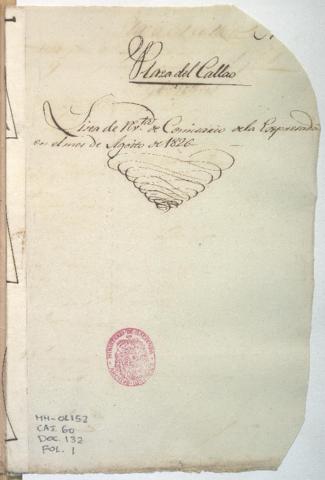 Plaza del Callao
Lista de Rv.ta de Comisario de la Expresada
en el mes de Agosto de 1826
MINISTERIO DE HACIENDA
MH-OL152
CAJ. 60
DOC. 132
FOL. 1